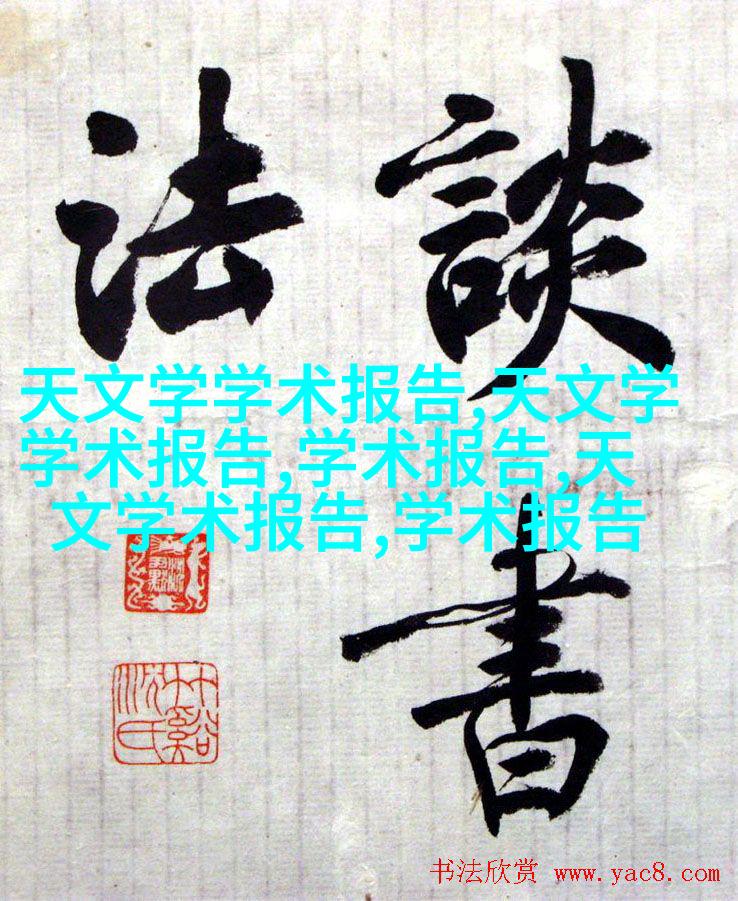 談書
法
天文学学术报告,天文学
学术报告,学术报告,天
文学术报告,学术报告
书法欣赏 www.yac8.com